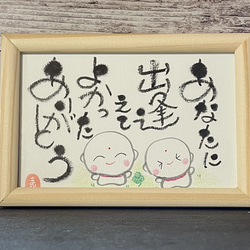 あなたに
出逢
えて
よかった
ありがとう